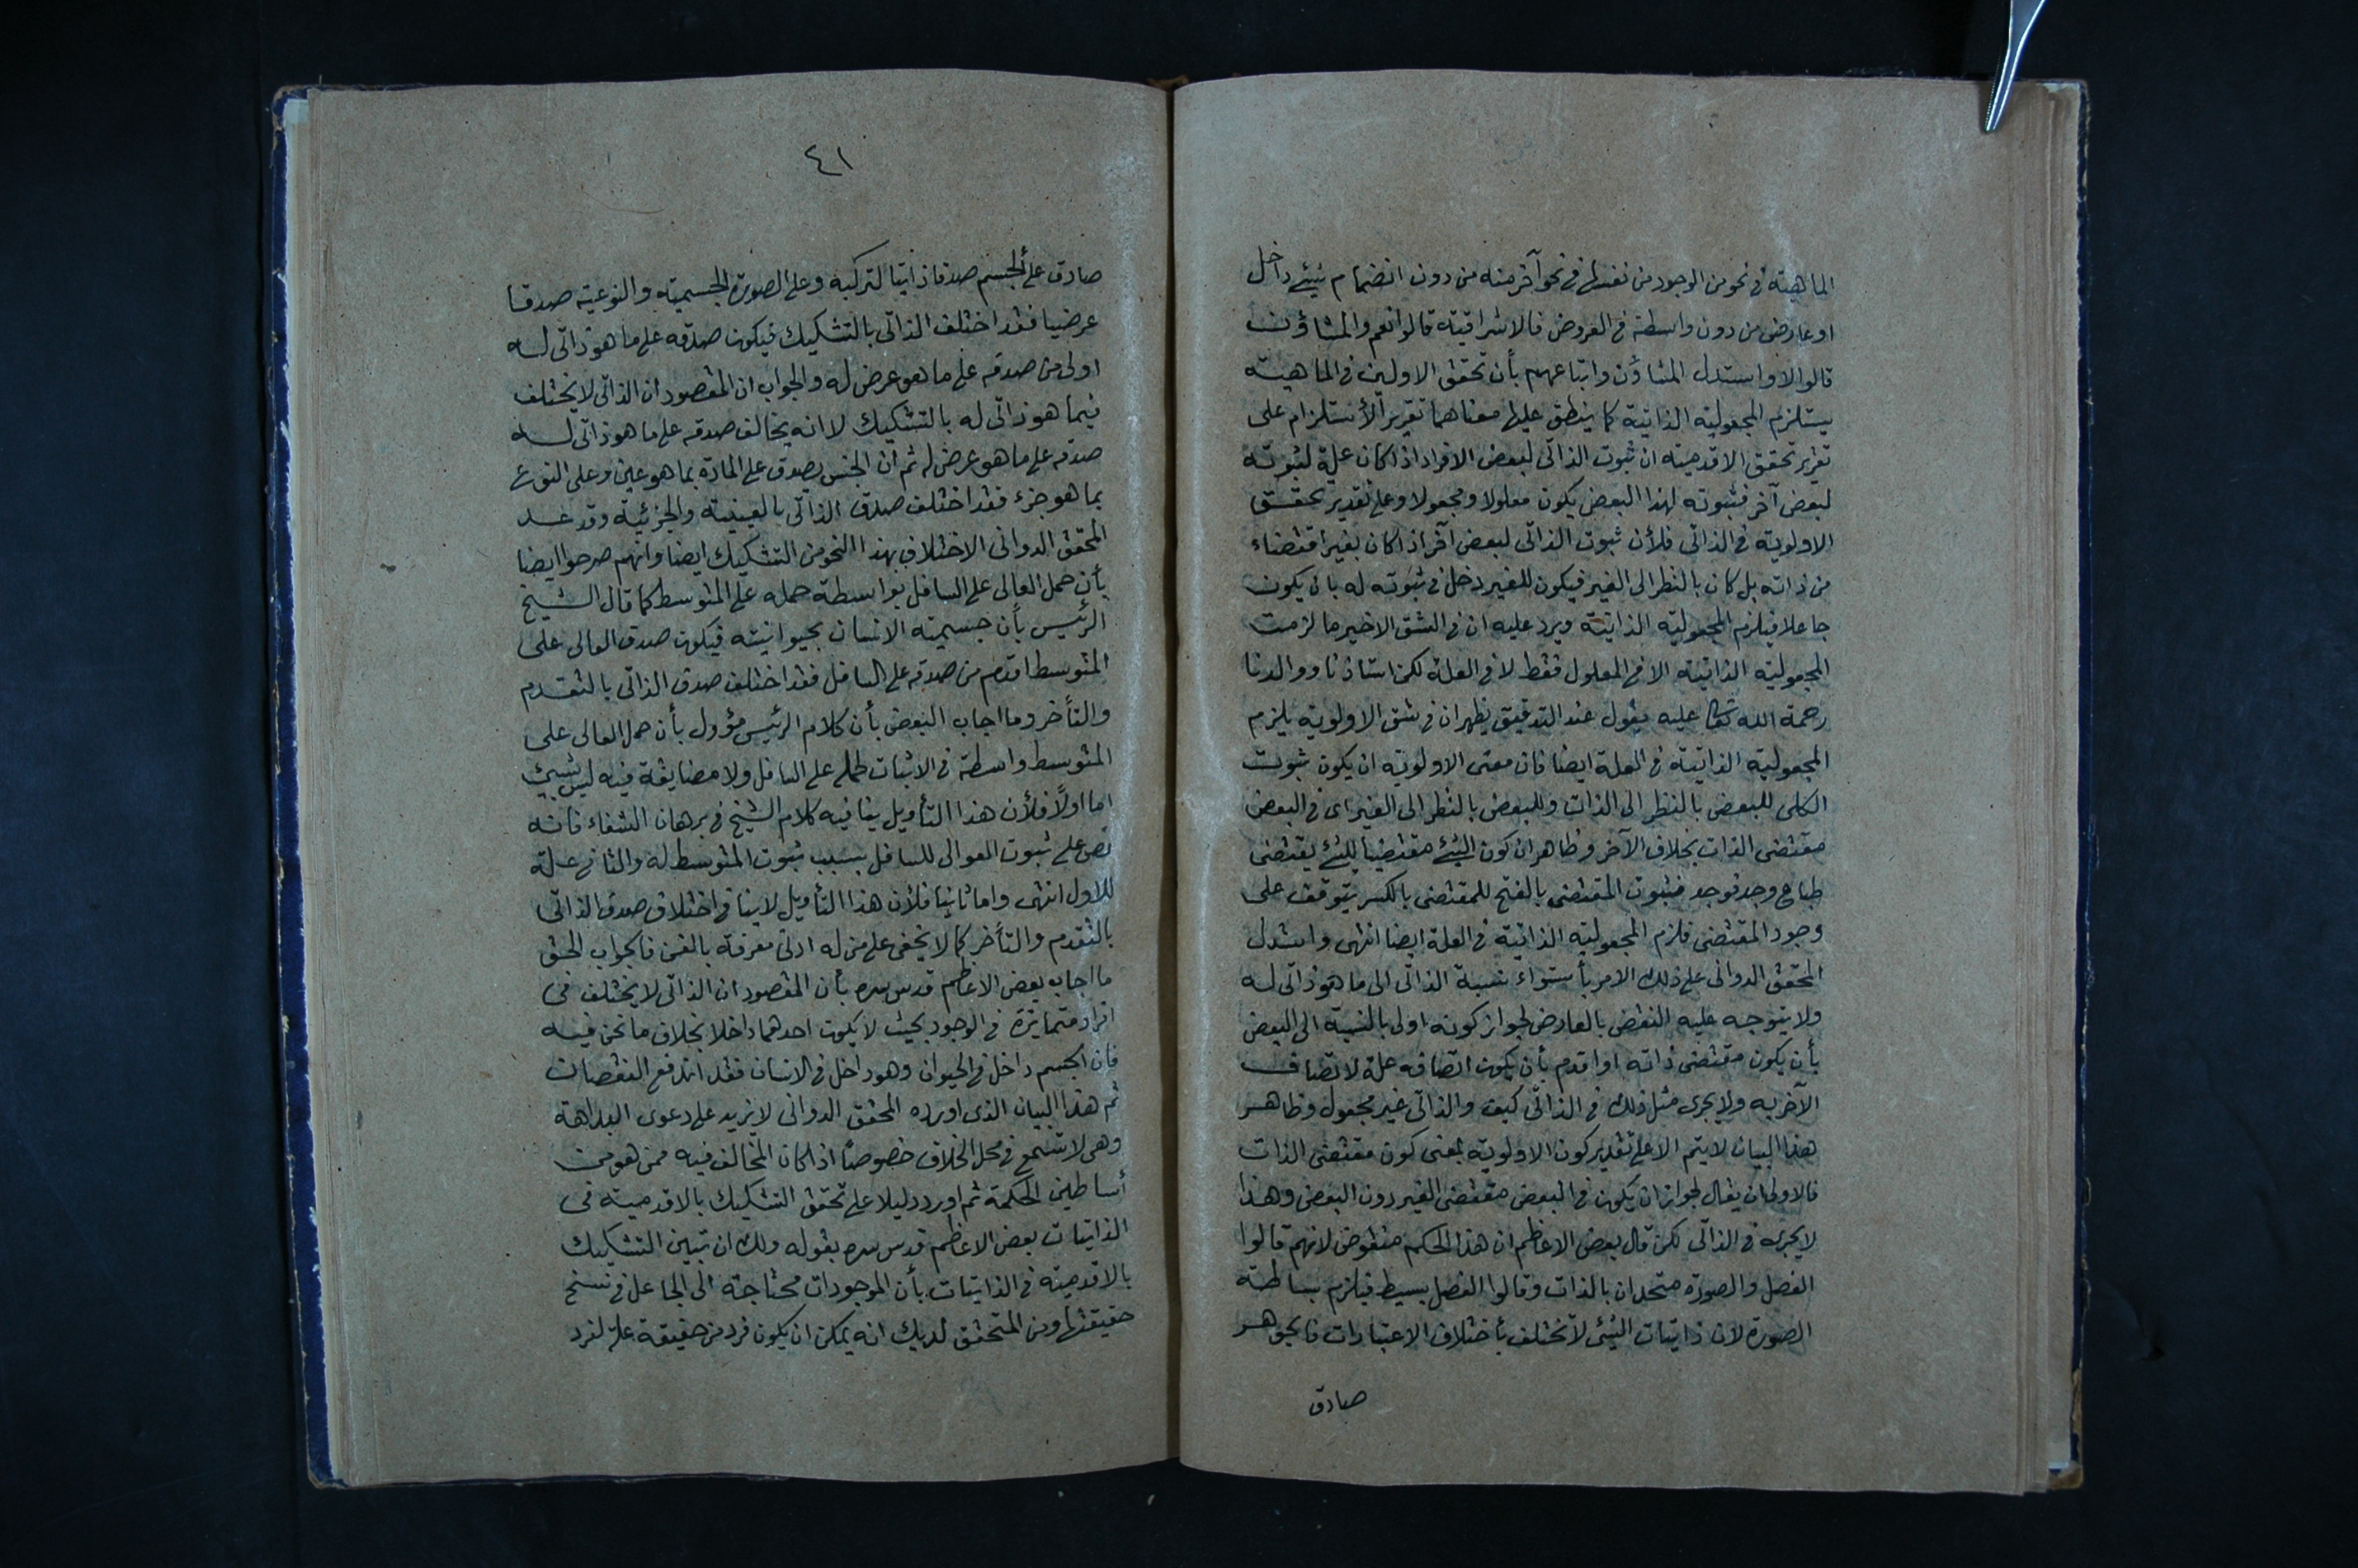 الماهية فى نحو من الوجود من نفسها فى نحو آخر منه من دون انضمام شيئ داخل
او عارض من دون واسطة فى العروض فالاشراقية قالوا نعم والمشاؤن
قالوا لا واستدل المشاؤن واتباعهم بأن تحقق الاولين فى الماهية
يستلزم المجعولية الذاتية كما ينطق عليها معناهما تقرير الأستلزام على
تقرير تحقق الاقدمية ان ثبوت الذاتى لبعض الافراد اذا كان علة لثبوته
لبعض آخر فثبوته لهذا البعض يكون معلولا ومجعولا وعلى تقدير تحقق
الاولوية فى الذاتى فلأن ثبوت الذاتى لبعض آخر اذا كان بغير اقتضاء
من ذاته بل كان بالنظر الى الغير فيكون للغير دخل فى ثبوته له بان يكون
جاعلا فيلزم المجعولية الذاتية ويرد عليه ان فى الشق الاخير ما لزمت
المجعولية الذاتية الا فى المعلول فقط لا فى العلة لكن استاذنا ووالدنا
رحمة الله تعالى عليه يقول عند التدقيق يظهر ان فى شق الاولوية يلزم
المجعولية الذاتية فى العلة ايضا فان معنى الاولوية ان يكون ثبوت
الكلى للبعض بالنظر الى الذات وللبعض بالنظر الى الغير اى فى البعض
مقتضى الذات بخلاف الآخر وظاهر ان كون الشيئ مقتضيا للشيئ يقتضى
طباع وجد فوجد فثبوت المقتضى بالفتح للمقتضى بالكسر يتوقف على
وجود المقتضى فلزم المجعولية الذاتية فى العلة ايضا انتهى واستدل
المحقق الدوانى على ذلك الامر بأستواء نسبة الذاتى الى ما هو ذاتى له
ولا يتوجه عليه النقض بالعارض لجواز كونه اولى بالنسبة الى البعض
بأن يكون مقتضى ذاته او اقدم بأن يكون اتصافه علة لاتصاف
الآخر به ولا يجرى مثل ذلك فى الذاتى كيف والذاتى غير مجعول وظاهر
هذا البيان لا يتم الا على تقدير كون الاولوية بمعنى كون مقتضى الذات
فالاولى ان يقال لجواز ان يكون فى البعض مقتضى الغير دون البعض وهذا
لا يجرى فى الذاتى لكن قال بعض الاعاظم ان هذا الحكم منقوض لانهم قالوا
الفصل والصورة متحدان بالذات وقالوا الفصل بسيط فيلزم بساطة
الصورة لان ذاتيات الشئى لا تختلف بأختلاف الاعتبارات فالجوهر
صادق
٤١
صادق على الجسم صدقا ذاتيا لتركبه وعلى الصورة الجسمية والنوعية صدقا
عرضيا فقد اختلف الذاتى بالتشكيك فيكون صدقه على ما هو ذاتى له
اولى من صدقه على ما هو عرض له والجواب ان المقصود ان الذاتى لا يختلف
فيما هو ذاتى له بالتشكيك لا انه يخالف صدقه على ما هو ذاتى له
صدقه على ما هو عرض له ثم ان الجنس يصدق على المادة بما هو عين وعلى النوع
بما هو جزء فقد اختلف صدق الذاتى بالعينية والجزئية وقد عد
المحقق الدوانى الاختلاف بهذا النحو من التشكيك ايضا وانهم صرحوا ايضا
بأن حمل العالى على السافل بواسطة حمله على المتوسط كما قال الشيخ
الرئيس بأن جسمية الانسان بحيوانيته فيكون صدق العالى على
المتوسط اقدم من صدقه على السافل فقد اختلف صدق الذاتى بالتقدم
والتأخر وما اجاب البعض بأن كلام الرئيس مؤول بأن حمل العالى على
المتوسط واسطة فى الاثبات لحمله على السافل ولا مضايقة فيه ليس بشيئ
اما اولًا فلأن هذا التأويل ينافيه كلام الشيخ فى برهان الشفاء فانه
نص على ثبوت العوالى للسافل بسبب ثبوت المتوسط له والثانى علة
للاول انتهى واما ثانيا فلأن هذا التأويل لا ينافى اختلاف صدق الذاتى
بالتقدم والتأخر كما لا يخفى على من له ادنى معرفة بالفن فالجواب الحق
ما اجاب بعض الاعاظم قدس سره بأن المقصود ان الذاتى لا يختلف فى
افراد متمايزة فى الوجود بحيث لا يكون احدهما داخلا بخلاف ما نحن فيه
فان الجسم داخل فى الحيوان وهو داخل فى الانسان فقد اندفع النقضان
ثم هذا البيان الذى اورده المحقق الدوانى لا يزيد على دعوى البداهة
وهى لا تسمع فى محل الخلاف خصوصًا اذا كان المخالف فيه ممن هو من
أساطين الحكمة ثم اورد دليلا على تحقق التشكيك بالاقدمية فى
الذاتيات بعض الاعاظم قدس سره بقوله ولك ان تبين التشكيك
بالاقدمية فى الذاتيات بأن الموجودات محتاجة الى الجاعل فى نسنح
حقيقتها ومن المتحقق لديك انه يمكن ان يكون فرد من حقيقة علة لفرد